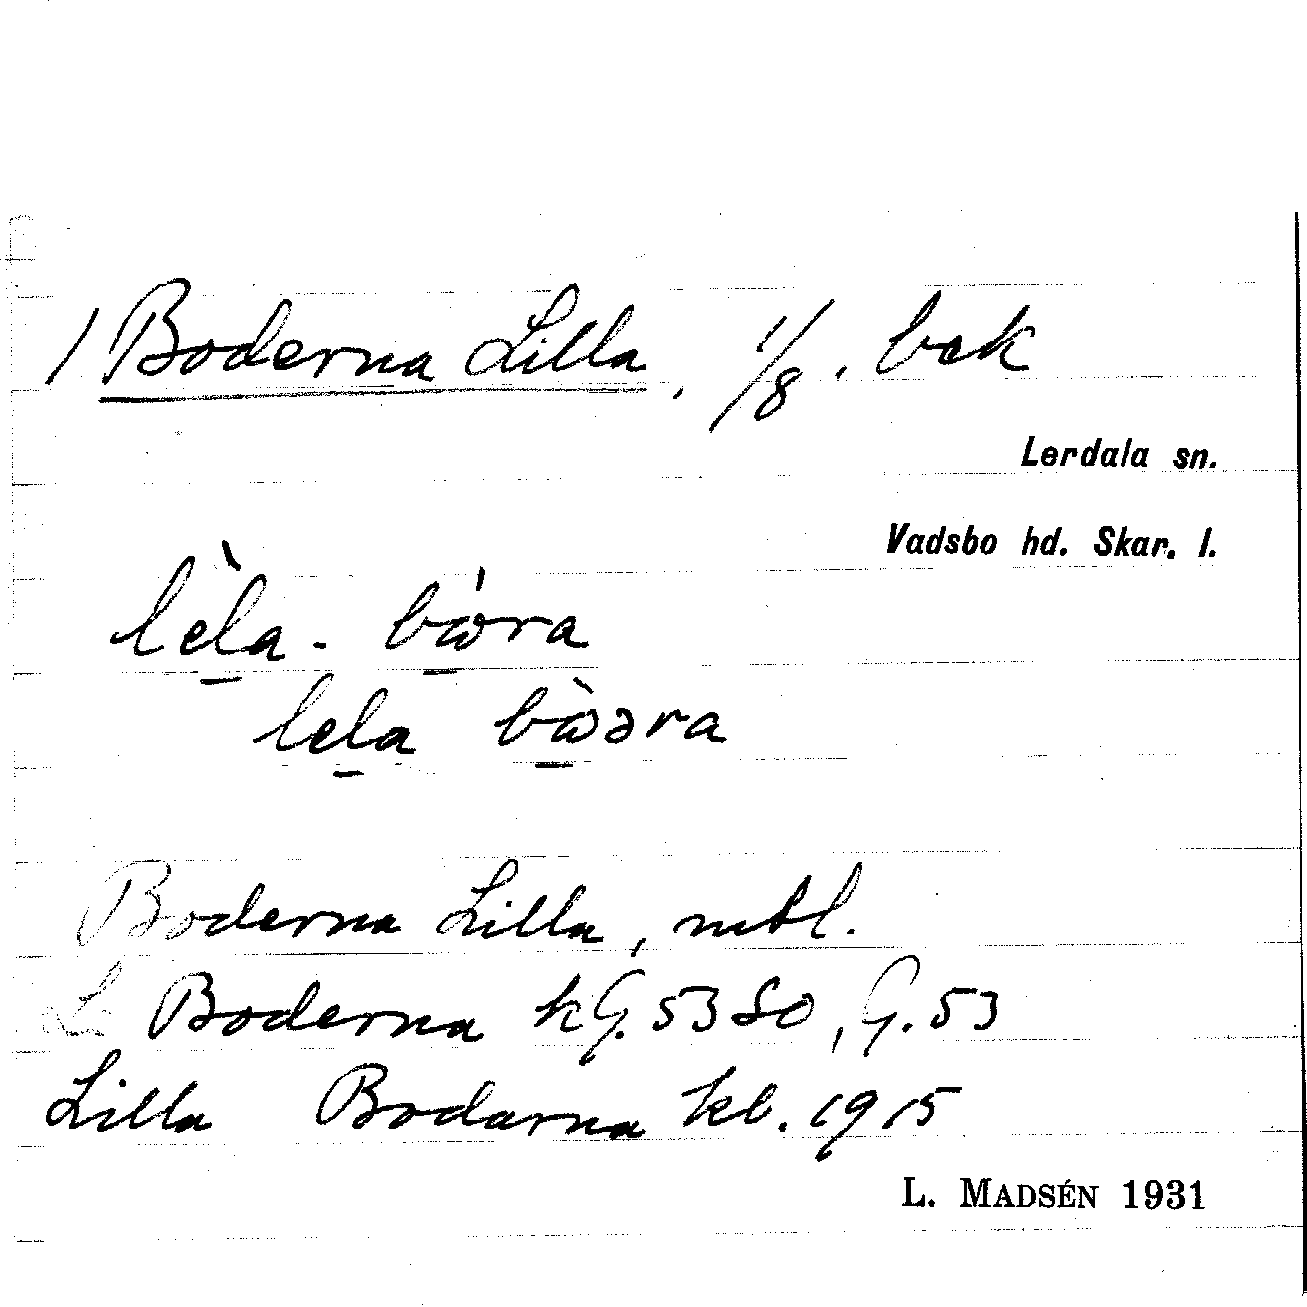 1 Boderna Lilla, 1/8. bek
Lerdala sn.
Vadsbo hd. Skar. l.
lèla - bówra
lela bòwəra
Boderna Lilla, mtl.
L Boderna kG. 53 SO, G. 53
Lilla Bodarna kb. 1915
L. MADSÉN 1931